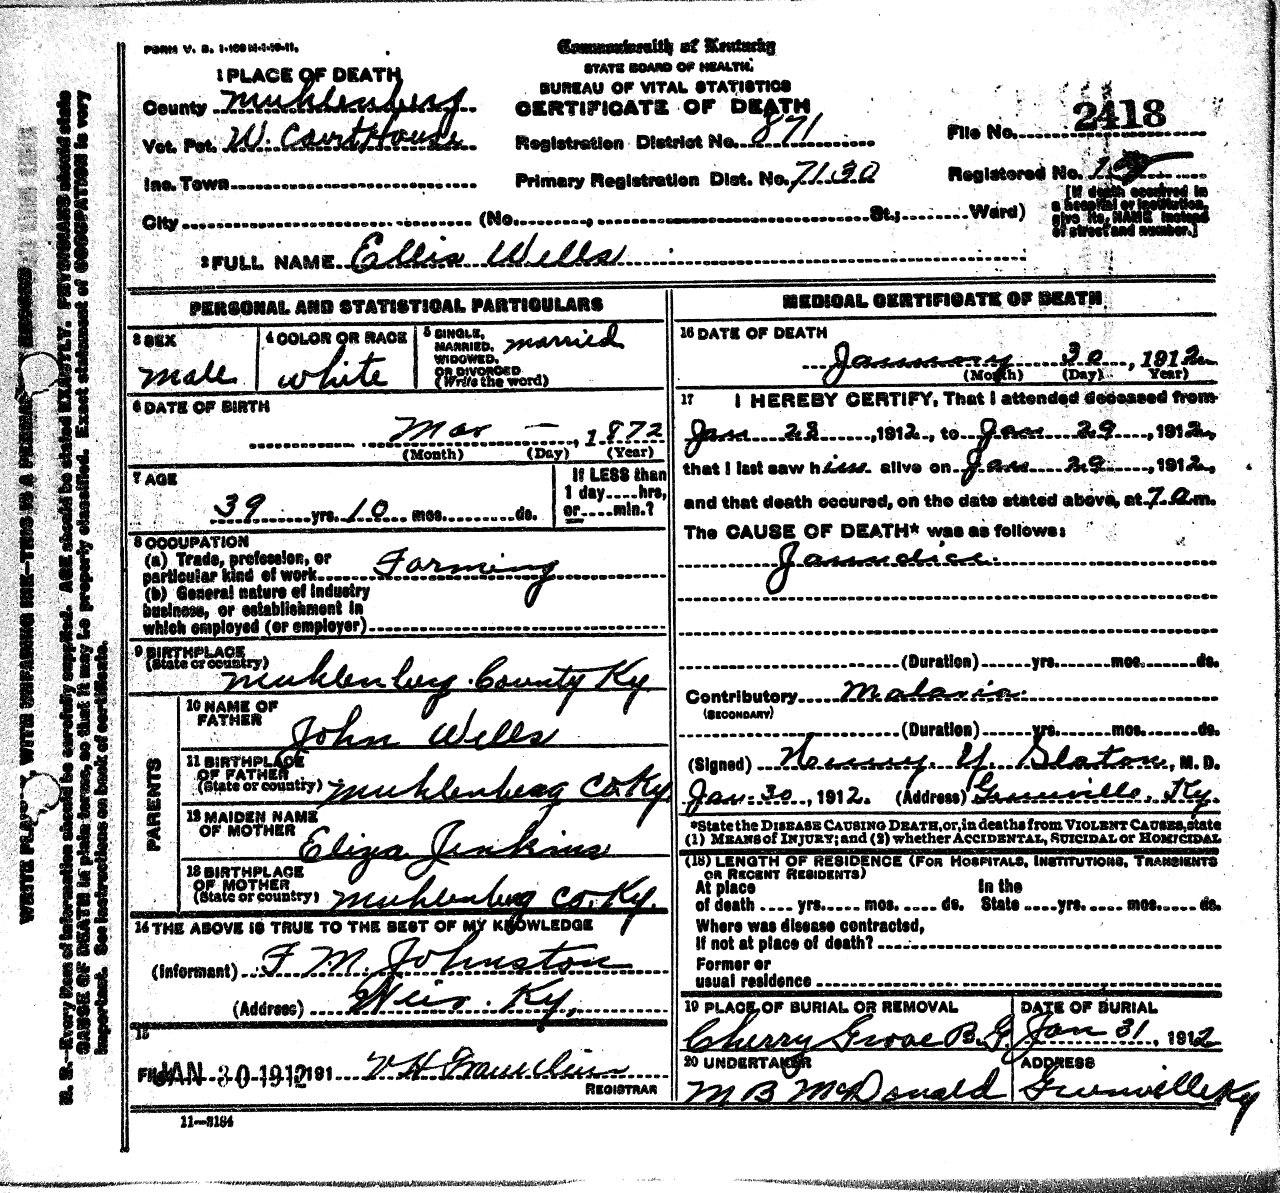 FORM V. S. 1-100 M-1-10-11.
Commonwealth of Kentucky
STATE BOARD OF HEALTH.
BUREAU OF VITAL STATISTICS
CERTIFICATE OF DEATH
1 PLACE OF DEATH
County Muhlenberg
Vot. Pct. W. CourtHouse
Inc. Town
City (No. , St.; Ward)
Registration District No. 871
Primary Registration Dist. No. 7130
File No. 2418
Registered No.
[If death occurred in
a hospital or institution,
give its NAME instead
of street and number.]
2 FULL NAME Ellis Wells
PERSONAL AND STATISTICAL PARTICULARS
3 SEX
male
4 COLOR OR RACE
white
5 SINGLE, married
MARRIED,
WIDOWED,
OR DIVORCED
(Write the word)
6 DATE OF BIRTH
Mar — , 1872
(Month) (Day) (Year)
7 AGE
39 yrs. 10 mos. ds.
If LESS than
1 day....hrs,
or.....min.?
8 OCCUPATION
(a) Trade, profession, or
particular kind of work Farming
(b) General nature of industry
business, or establishment in
which employed (or employer)
9 BIRTHPLACE
(State or country)
Muhlenberg County Ky
PARENTS
10 NAME OF
FATHER
John Wells
11 BIRTHPLACE
OF FATHER
(State or country) Muhlenberg Co Ky
12 MAIDEN NAME
OF MOTHER
Eliza Jenkins
13 BIRTHPLACE
OF MOTHER
(State or country) Muhlenberg Co. Ky.
14 THE ABOVE IS TRUE TO THE BEST OF MY KNOWLEDGE
(Informant) F M Johnston
(Address) Weir. Ky,
15
JAN 30 1912 191
REGISTRAR
11—3184
MEDICAL CERTIFICATE OF DEATH
16 DATE OF DEATH
January 30 , 1912
(Month) (Day) Year)
17 I HEREBY CERTIFY, That I attended deceased from
Jan 28 ,1912, to Jan 29 , 1912,
that I last saw him alive on Jan 29 , 1912,
and that death occured, on the date stated above, at 7 a m.
The CAUSE OF DEATH* was as follows:
Jaundice.
(Duration) yrs. mos. ds.
Contributory Malaria
(SECONDARY)
(Duration) yrs. mos. ds.
(Signed) Slaton, M. D.
Jan. 30 , 1912. (Address) Greenville, Ky.
*State the DISEASE CAUSING DEATH, or, in deaths from VIOLENT CAUSES, state
(1) MEANS OF INJURY; and (2) whether ACCIDENTAL, SUICIDAL or HOMICIDAL
(18) LENGTH OF RESIDENCE (FOR HOSPITALS, INSTITUTIONS, TRANSIENTS
OR RECENT RESIDENTS)
At place In the
of death .... yrs. mos. ds. State yrs. mos. ds.
Where was disease contracted,
If not at place of death?
Former or
usual residence
19 PLACE OF BURIAL OR REMOVAL
Cherry Grove B. G.
DATE OF BURIAL
Jan 31 , 1912
20 UNDERTAKER
M B McDonald
ADDRESS
Greenville Ky
N. B.—Every item of information should be carefully supplied. AGE should be stated EXACTLY. PHYSICIANS should state
CAUSE OF DEATH in plain terms, so that it may be properly classified. Exact statement of OCCUPATION is very
important. See instructions on back of certificate.